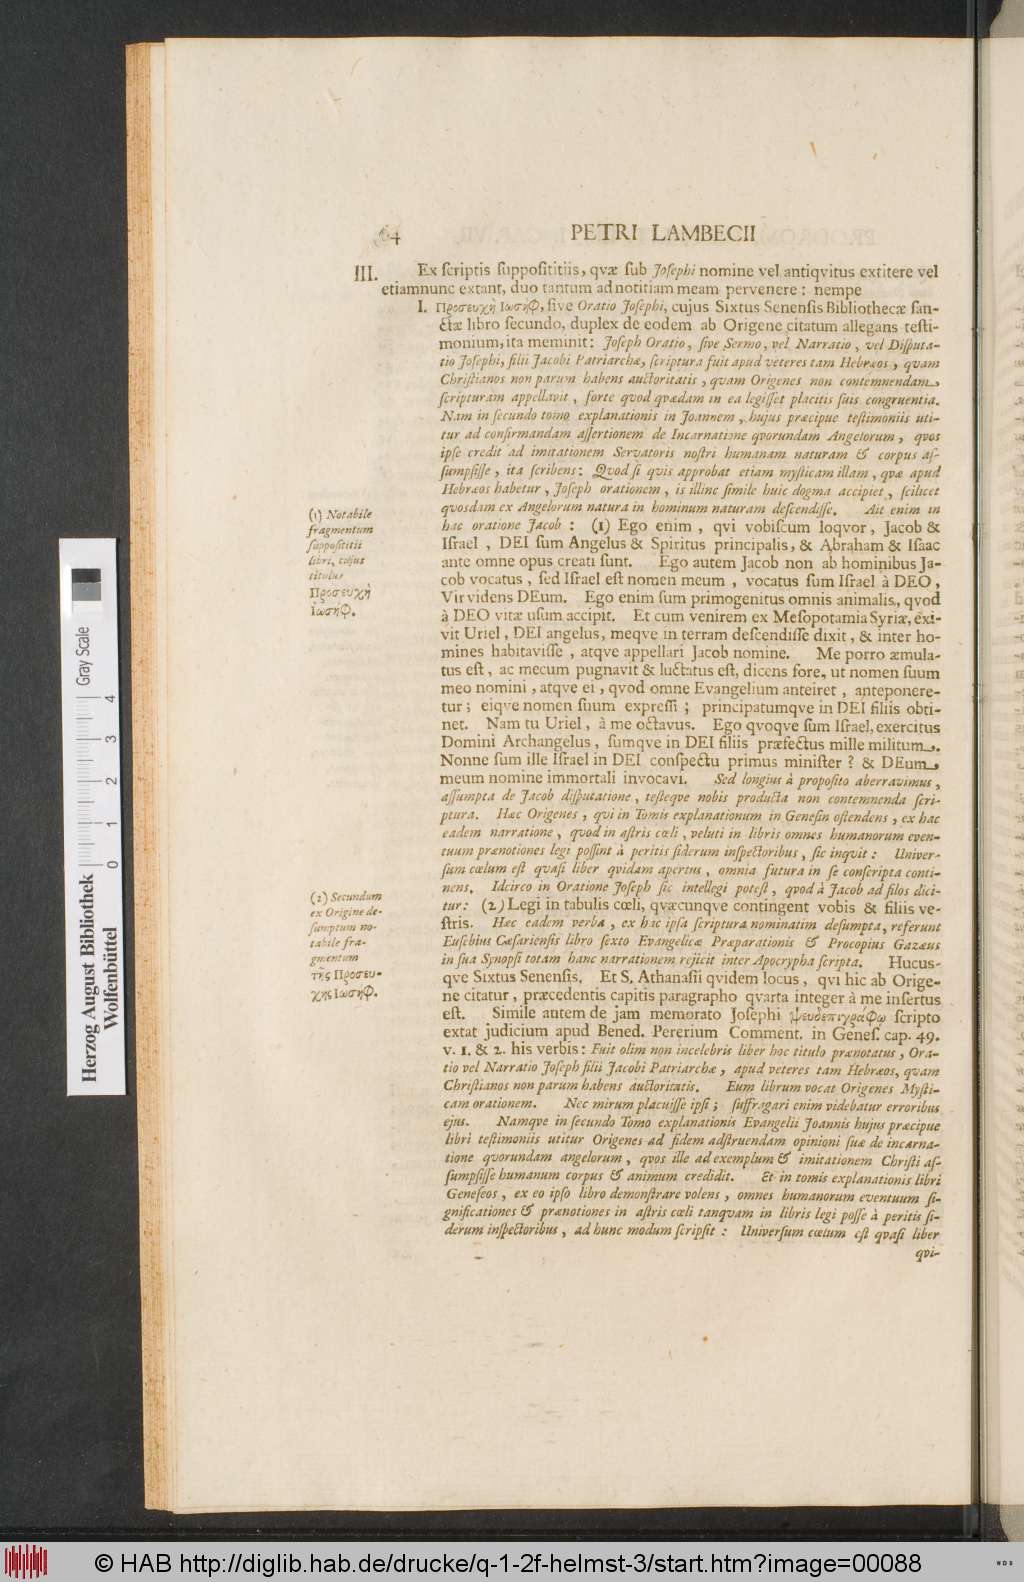 64 PETRI LAMBECII
III. Ex ſcriptis ſuppoſititiis, qvæ ſub Joſephi nomine vel antiqvitus extitere vel
etiamnunc extant, duo tantum ad notitiam meam pervenere: nempe
I. Προσευχὴ Ἰωσήφ, ſive Oratio Joſephi, cujus Sixtus Senenſis Bibliothecæ ſan-
ctæ libro ſecundo, duplex de eodem ab Origene citatum allegans teſti-
monium, ita meminit: Joſeph Oratio, ſive Sermo, vel Narratio, vel Diſputa-
tio Joſephi, filii Jacobi Patriarchæ, ſcriptura fuit apud veteres tam Hebræos, quam
Chriſtianos non parum habens auctoritatis, quam Origenes non contemnendam
ſcripturam appellavit, forte quod quædam in ea legiſſet placitis ſuis congruentia.
Nam in ſecundo tomo explanationis in Joannem, hujus præcipue teſtimoniis uti-
tur ad confirmandam aſſertionem de Incarnatione qvorundam Angelorum, quos
ipſe credit ad imitationem Servatoris noſtri humanam naturam & corpus aſ-
ſumpſiſſe, ita ſcribens: Quod ſi quis approbat etiam myſticam illam, quæ apud
Hebræos habetur, Joſeph orationem, is illinc ſimile huic dogma accipiet, ſcilicet
quosdam ex Angelorum natura in hominum naturam deſcendiſſe. Ait enim in
hac oratione Jacob: (1) Ego enim, qvi vobiſcum loqvor, Jacob &
Iſrael, DEI ſum Angelus & Spiritus principalis, & Abraham & Iſaac
ante omne opus creati ſunt. Ego autem Jacob non ab hominibus Ja-
cob vocatus, ſed Iſrael eſt nomen meum, vocatus ſum Iſrael à DEO,
Vir videns DEum. Ego enim ſum primogenitus omnis animalis, qvod
à DEO vitæ uſum accipit. Et cum venirem ex Meſopotamia Syriæ, exi-
vit Uriel, DEI angelus, meqve in terram deſcendiſſe dixit, & inter ho-
mines habitaviſſe, atqve appellari Jacob nomine. Me porro æmula-
tus eſt, ac mecum pugnavit & luctatus eſt, dicens fore, ut nomen ſuum
meo nomini, atqve ei, qvod omne Evangelium anteiret, anteponere-
tur; eiqve nomen ſuum expreſſi; principatumqve in DEI filiis obti-
net. Nam tu Uriel, à me octavus. Ego qvoqve ſum Iſrael, exercitus
Domini Archangelus, ſumqve in DEI filiis præfectus mille militum.
Nonne ſum ille Iſrael in DEI conſpectu primus miniſter? & DEum
meum nomine immortali invocavi. Sed longius à propoſito aberravimus,
aſſumpta de Jacob diſputatione, teſteqve nobis producta non contemnenda ſcri-
ptura. Hæc Origenes, qvi in Tomis explanationum in Geneſin oſtendens, ex hac
eadem narratione, quod in aſtris cœli, veluti in libris omnes humanorum even-
tuum prænotiones legi poſſint à peritis ſiderum inſpectoribus, ſic inqvit: Univer-
ſum cœlum eſt quaſi liber qvidam apertus, omnia futura in ſe conſcripta conti-
nens. Idcirco in Oratione Joſeph ſic intellegi poteſt, quod à Jacob ad filos dici-
tur: (2) Legi in tabulis cœli, qvæcunqve contingent vobis & filiis ve-
ſtris. Hæc eadem verba, ex hac ipſa ſcriptura nominatim deſumpta, referunt
Euſebius Cæſarienſis libro ſexto Evangelicæ Præparationis & Procopius Gazæus
in ſua Synopſi totam hanc narrationem rejicit inter Apocrypha ſcripta. Hucus-
qve Sixtus Senenſis. Et S. Athanaſii qvidem locus, qvi hic ab Orige-
ne citatur, præcedentis capitis paragrapho qvarta integer à me inſertus
eſt. Simile autem de jam memorato Joſephi ψευδεπιγράφω ſcripto
extat judicium apud Bened. Pererium Comment. in Geneſ. cap. 49.
v. 1. & 2. his verbis: Fuit olim non incelebris liber hoc titulo prænotatus, Ora-
tio vel Narratio Joſeph filii Jacobi Patriarchæ, apud veteres tam Hebræos, quam
Chriſtianos non parum habens auctoritatis. Eum librum vocat Origenes Myſti-
cam orationem. Nec mirum placuiſſe ipſi; ſuffragari enim videbatur erroribus
ejus. Namqve in ſecundo Tomo explanationis Evangelii Joannis hujus præcipue
libri teſtimoniis utitur Origenes ad fidem adſtruendam opinioni ſuæ de incarna-
tione quorundam angelorum, qvos ille ad exemplum & imitationem Chriſti aſ-
ſumpſiſſe humanum corpus & animum credidit. Et in tomis explanationis libri
Geneſeos, ex eo ipſo libro demonſtrare volens, omnes humanorum eventuum ſi-
gnificationes & prænotiones in aſtris cœli tanqvam in libris legi poſſe à peritis ſi-
derum inſpectoribus, ad hunc modum ſcripſit: Univerſum cœlum eſt qvaſi liber
qvi-
(1) Notabile
fragmentum
ſuppoſititii
libri, cujus
titulus
Προσευχὴ
Ἰωσήφ.
(2) Secundum
ex Origine de-
ſumptum no-
tabile fra-
gmentum
τῆς Προσευ-
χῆς Ἰωσήφ.
Herzog August Bibliothek
Wolfenbüttel
0 1 2 3 4
Gray Scale
© HAB http://diglib.hab.de/drucke/q-1-2f-helmst-3/start.htm?image=00088
WDB